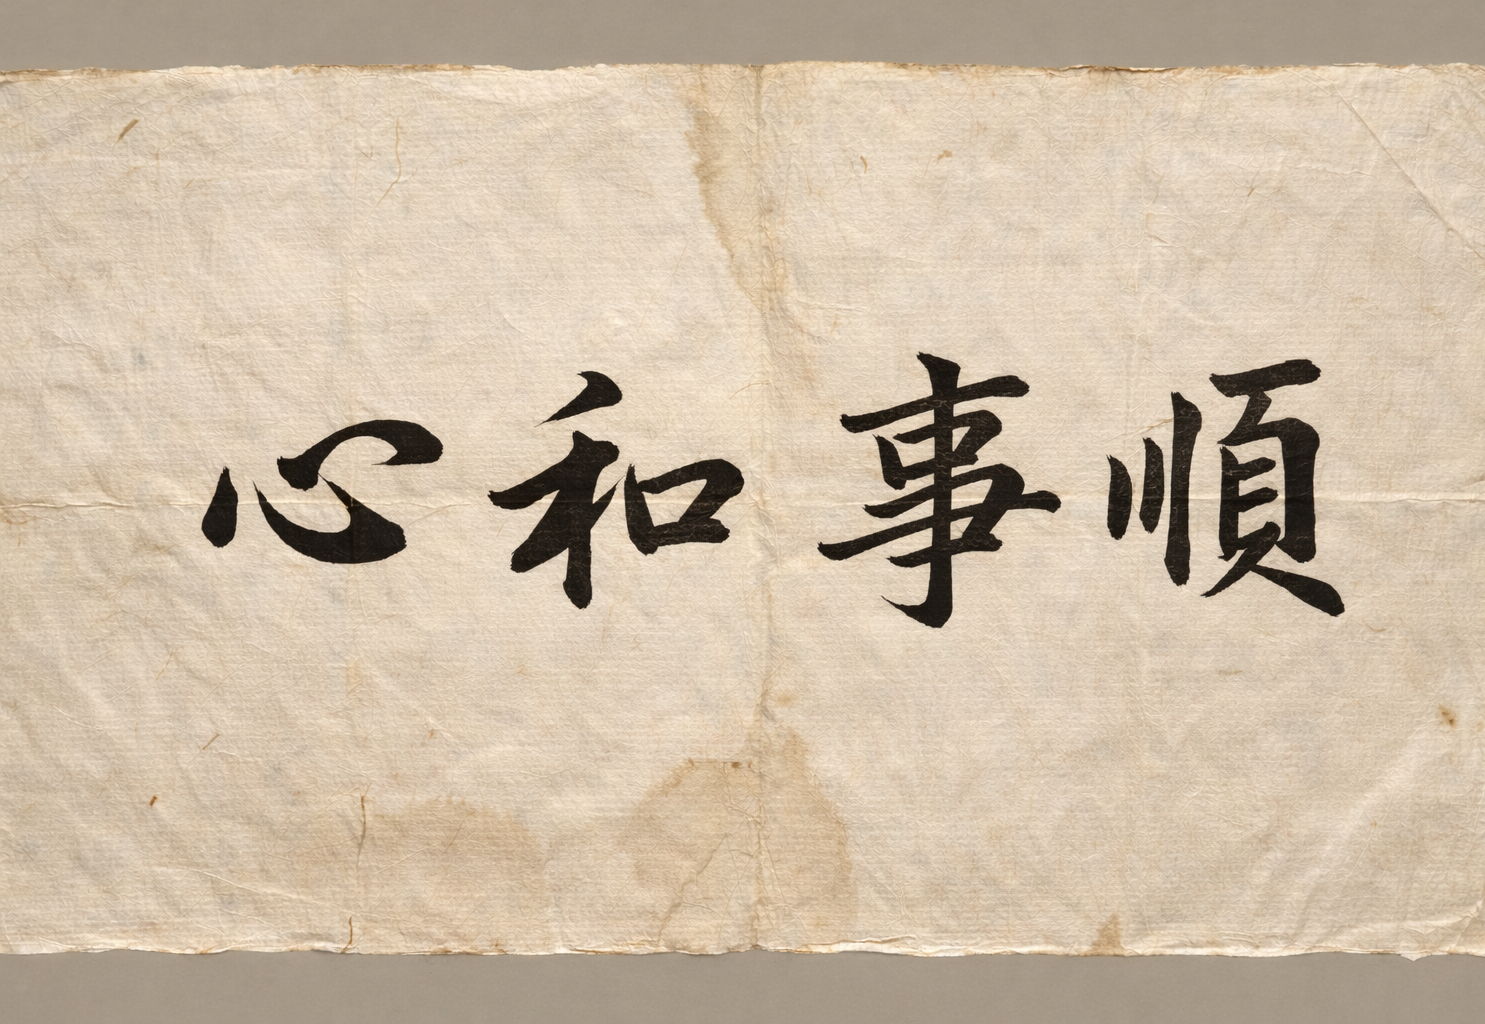 心和事順